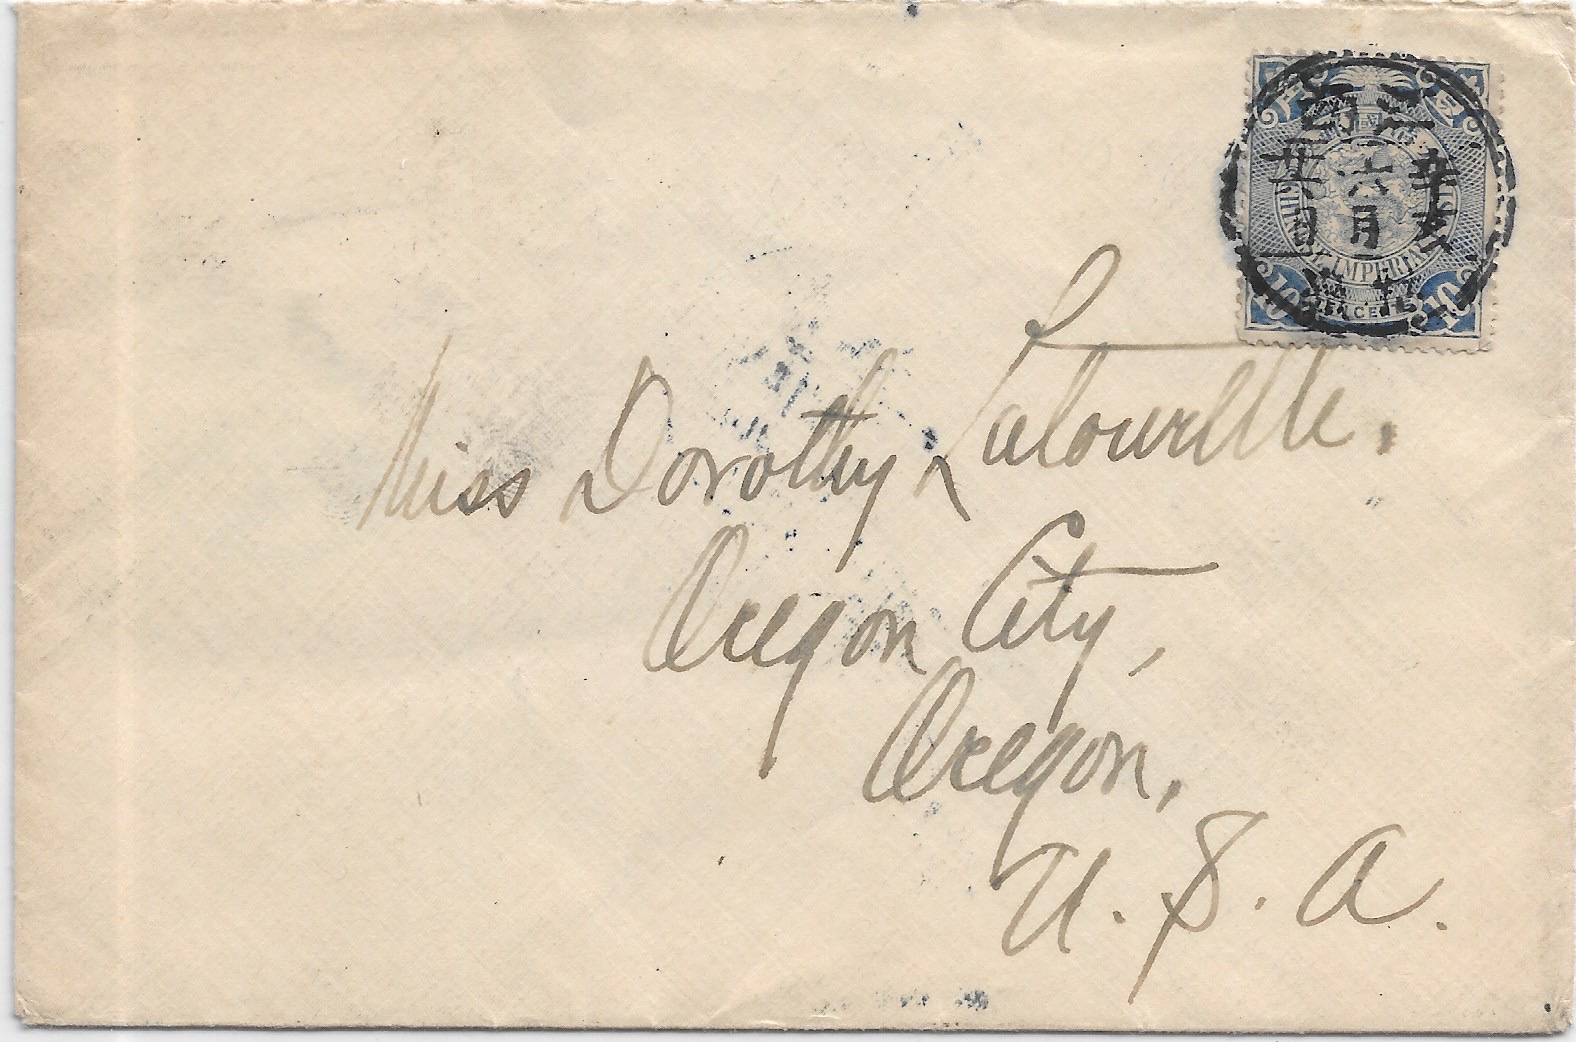 CHINESE IMPERIAL
10 CENTS 10
月
Miss Dorothy Latourette.
Oregon City,
Oregon,
U. S. A.